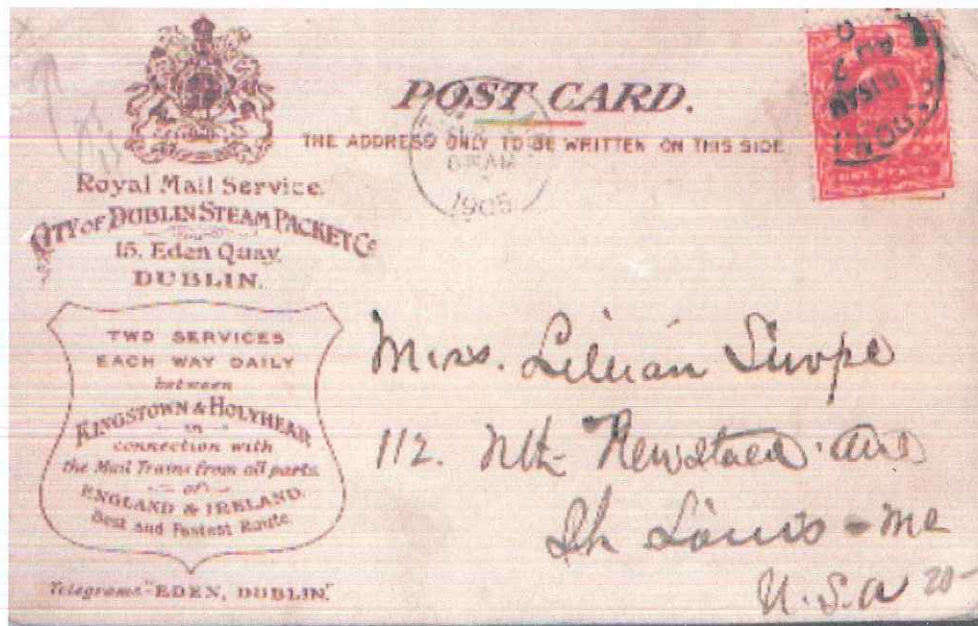 POST CARD.
THE ADDRESS ONLY TO BE WRITTEN ON THIS SIDE
Royal Mail Service.
CITY OF DUBLIN STEAM PACKET Co
15, Eden Quay,
DUBLIN.
TWO SERVICES
EACH WAY DAILY
between
KINGSTOWN & HOLYHEAD
in
connection with
the Mail Trains from all parts
of
ENGLAND & IRELAND.
Best and Fastest Route.
Telegrams "EDEN, DUBLIN."
AM
1905
ONE PENNY
Miss. Lillian
112. Nth Newstead Ave
St Louis - Mo
U.S.A
20-